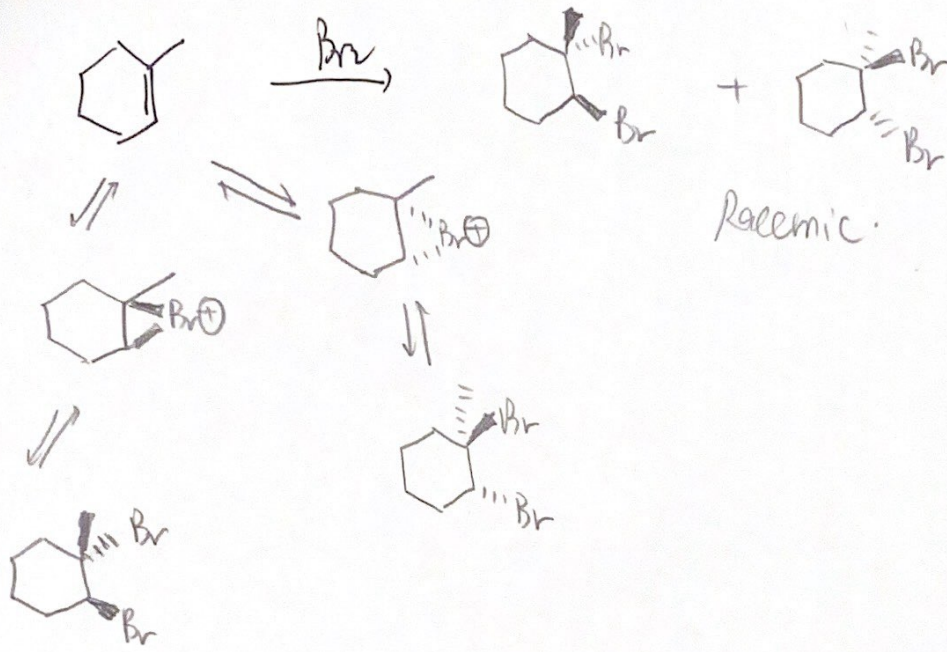 Br2
Br
Br
+
Br
Br
Racemic.
Br⊕
Br⊕
Br
Br
Br
Br